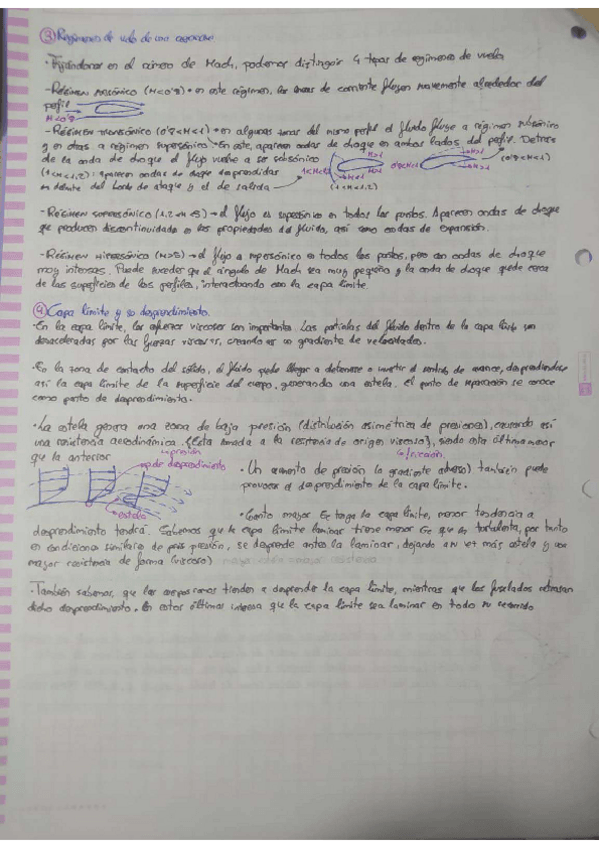 ③ Regímenes de vuelo de una aeronave
· Fijándonos en el número de Mach, podemos distinguir 4 tipos de regímenes de vuelo
- RÉGIMEN SUBSÓNICO (M<0'8) → en este régimen, las líneas de corriente fluyen suavemente alrededor del
perfil
M<0'8
- RÉGIMEN TRANSÓNICO (0'8<M<1) → en algunas zonas del mismo perfil el fluido fluye a régimen subsónico
y en otras a régimen supersónico. En este, aparecen ondas de choque en ambos lados del perfil. Detrás
de la onda de choque el flujo vuelve a ser subsónico
(0'8<M<1)
M>1
M>1
0'8<M<1
M<1
M>1
(1<M<1,2): aparecen ondas de choque desprendidas
1<M<1,2
en delante del borde de ataque y el de salida
(1<M<1,2)
- RÉGIMEN SUPERSÓNICO (1,2<M<5) → el flujo es supersónico en todos los puntos. Aparecen ondas de choque
que producen discontinuidades en las propiedades del fluido, así como ondas de expansión.
- RÉGIMEN HIPERSÓNICO (M>5) → el flujo es supersónico en todos los puntos, pero con ondas de choque
muy intensas. Puede suceder que el ángulo de Mach sea muy pequeño y la onda de choque quede cerca
de las superficies de los perfiles, interactuando con la capa límite.
④ Capa límite y su desprendimiento.
- En la capa límite, los esfuerzos viscosos son importantes. Las partículas del fluido dentro de la capa límite son
desaceleradas por las fuerzas viscosas, creando así un gradiente de velocidades.
· En la zona de contacto del sólido, el fluido puede llegar a detenerse o invertir el sentido de avance, desprendiéndose
así la capa límite de la superficie del cuerpo, generando una estela. El punto de separación se conoce
como punto de desprendimiento.
· La estela genera una zona de baja presión (distribución asimétrica de presiones), causando así
una resistencia aerodinámica. (Esta sumada a la resistencia de origen viscoso), siendo esta última menor
que la anterior
presión
fricción
p. de desprendimiento
estela
· Un aumento de presión (o gradiente adverso) también puede
provocar el desprendimiento de la capa límite.
· Cuanto mayor Ec tenga la capa límite, menor tendencia a
desprendimiento tendrá. Sabemos que la capa límite laminar tiene menor Ec que la turbulenta, por tanto
en condiciones similares de presión, se desprende antes la laminar, dejando a su vez más estela y una
mayor resistencia de forma (viscoso)
· También sabemos, que los cuerpos romos tienden a desprender la capa límite, mientras que los fuselados retrasan
dicho desprendimiento. En estos últimos interesa que la capa límite sea laminar en todo su recorrido